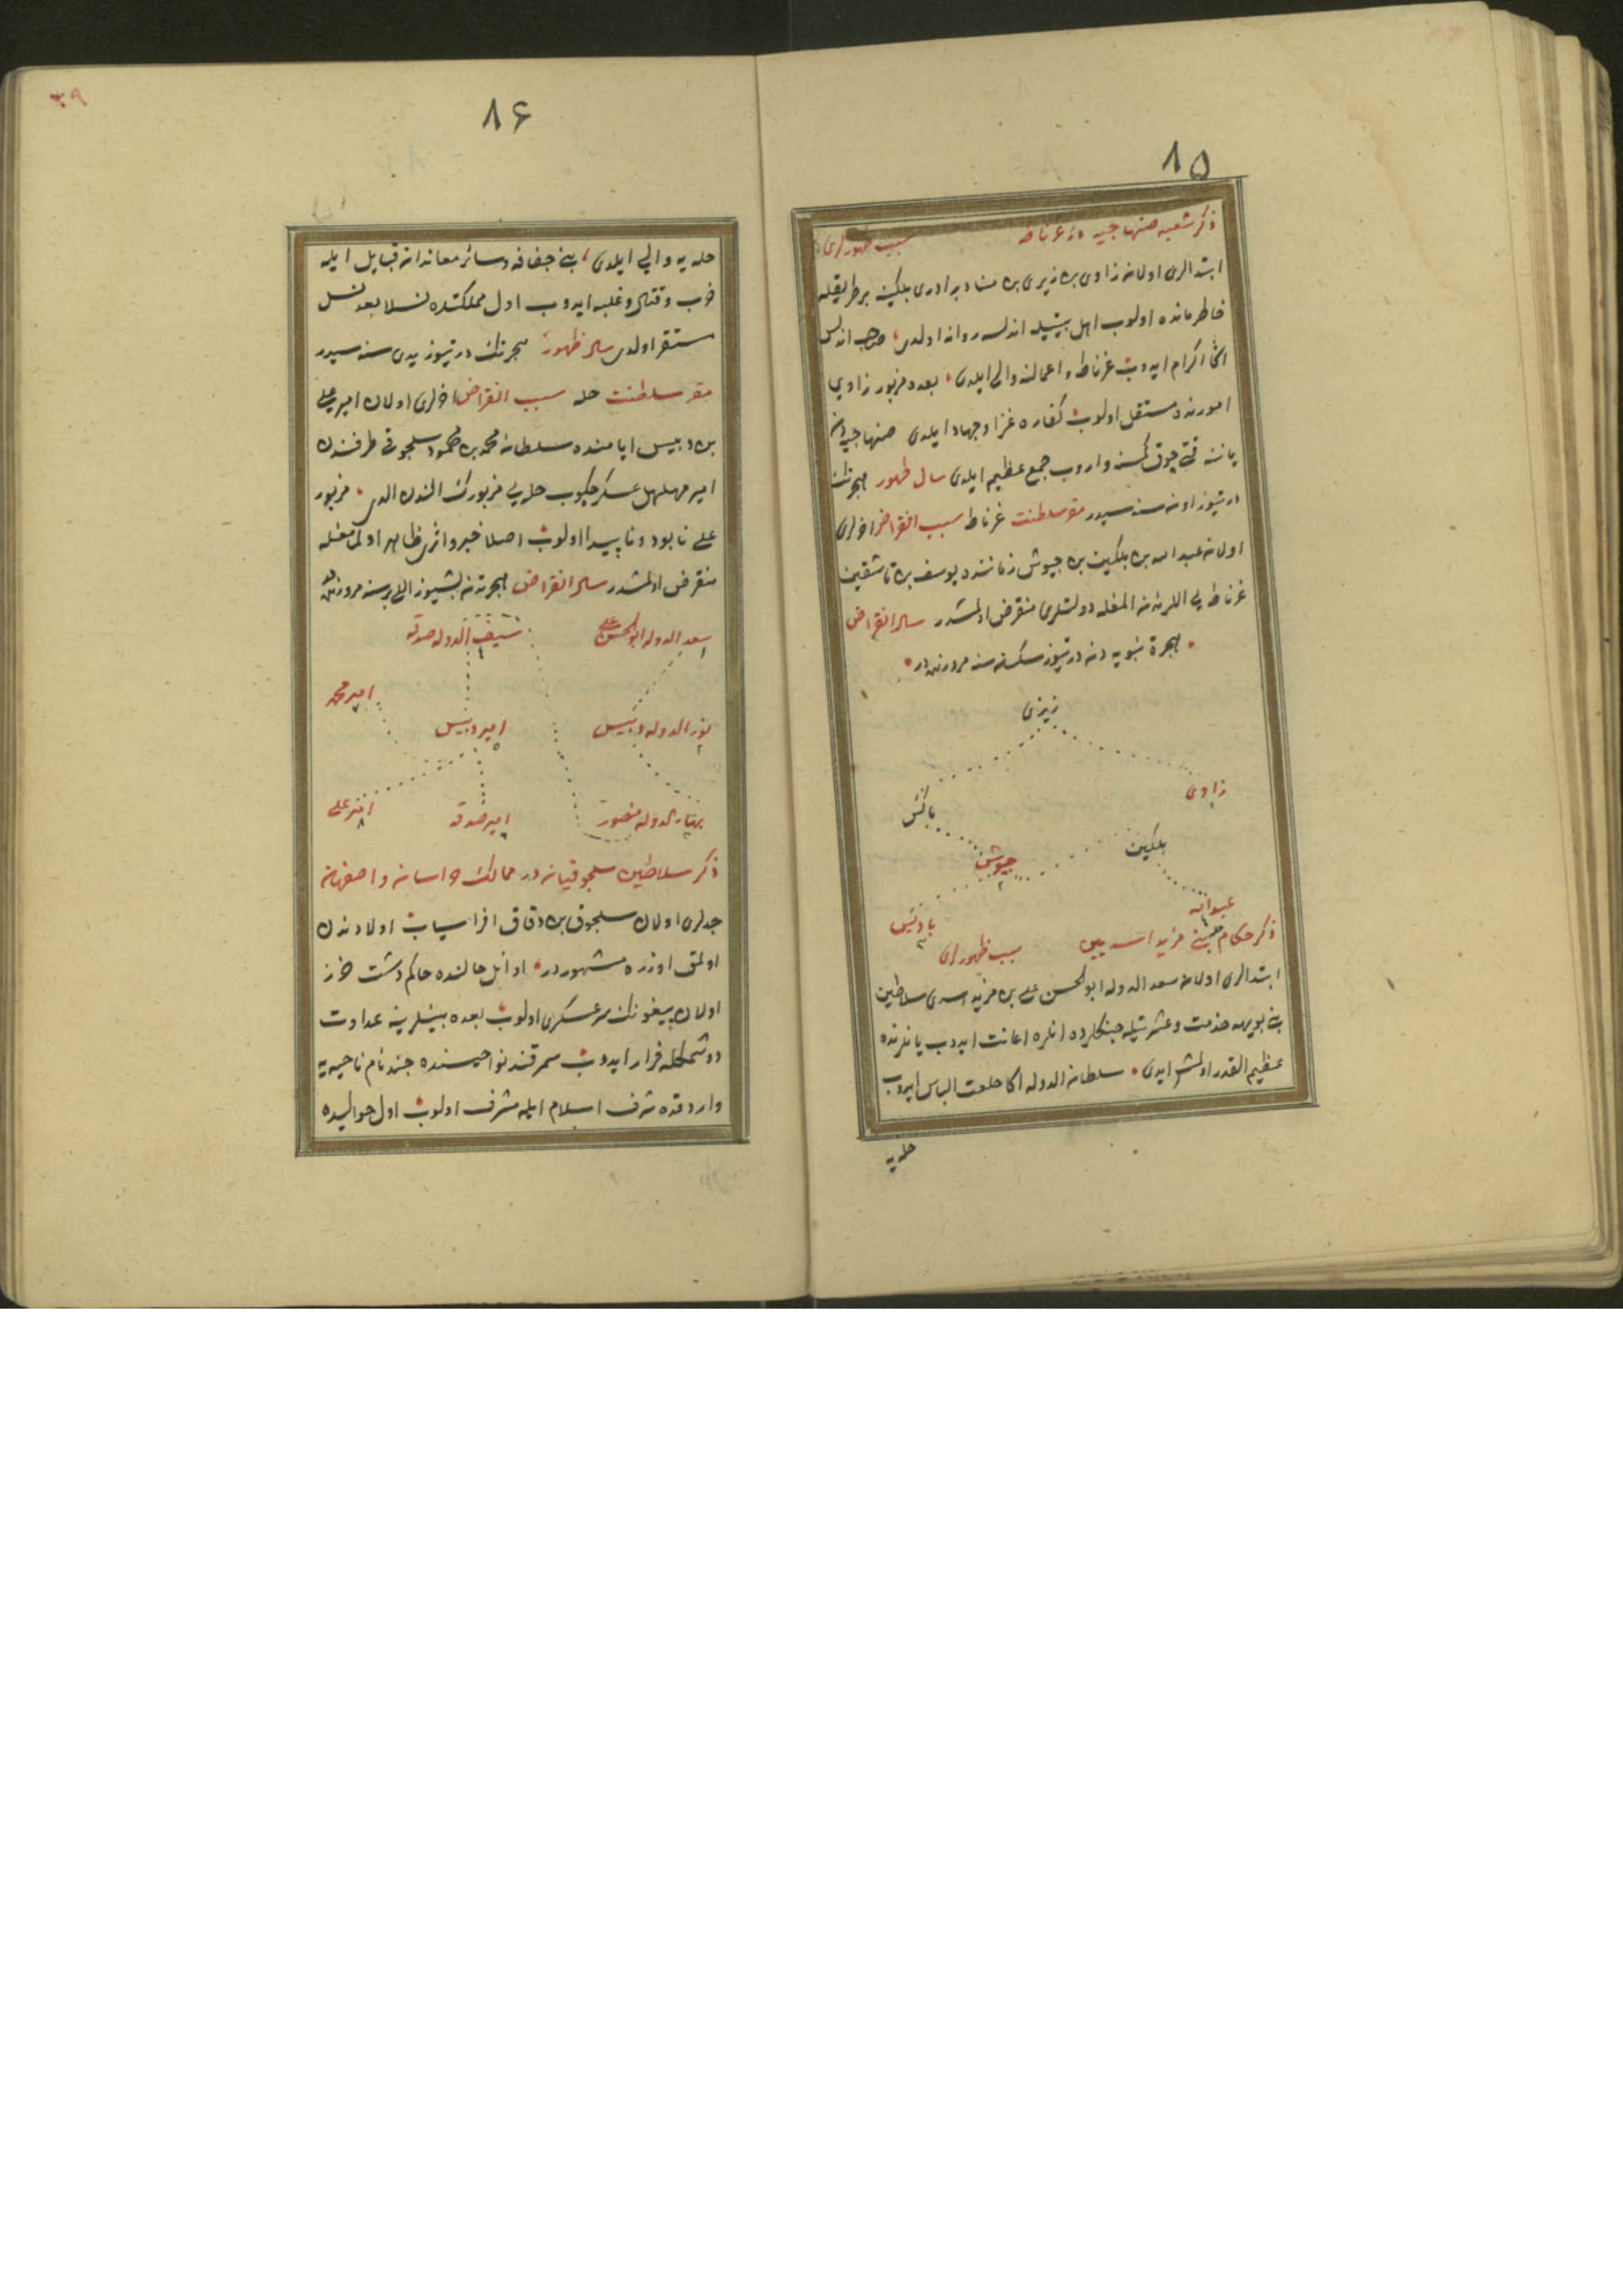 ٨٥
ذكر شعبه صنهاجيه در غرناطه سبب ظهورلرى
ابتدالرى اولان زاوى بن زيرى بن مناد برادرى بلكين بر طريقله
خاطرمانده اولوب اهل بيتيله اندلسه روانه اولدى صاحب اندلس
اكا اكرام ايدوب غرناطه و اعمالنه والى ايلدى بعده مزبور زاوي
امورنده مستقل اولوب كفاره غزا و جهاد ايلدى صنهاجيه دن
ياننه قتى چوق كمسنه واروب جمع عظيم ايلدى سال ظهور هجرتك
درتيوز اون سنه سيدر مقر سلطنت غرناطه سبب انقراض اخرلرى
اولان عبد الله بن بلكين بن جيوش زماننده يوسف بن تاشقين
غرناطه يي اللرندن المغله دولتلرى منقرض اولمشدر سال انقراض
هجرة نبويه دن درتيوز سكسان سنه مرورنده در
زيرى
زاوى
باكس
بلكين
جيوش ٢
عبد الله
باديس ٣
ذكر حكام بني مزيد اسديين سبب ظهورلرى
ابتدالرى اولان سعد الدوله ابو الحسن على بن مزيد اسدى سلاطين
بني بويهه خدمت و عشرتيله جنكلرده انلره اعانت ايدوب يانلرنده
عظيم القدر اولمش ايدى سلطان الدوله اكا خلعت الباس ايدوب
حله يه
٨٦
٣٩
حله يه والي ايلدى بني خفاجه و سائر معاندان قبايل ايله
حرب و قتال و غلبه ايدوب اول مملكتده نسلا بعد نسل
مستقر اولدى سال ظهور هجرتك درتيوز يدى سنه سيدر
مقر سلطنت حله سبب انقراض اخرلرى اولان امير على
بن دبيس ايامنده سلطان محمد بن محمود سلجوقى طرفندن
امير مهلهل عسكر چكوب حله يي مزبورك الندن الدى مزبور
على نابود و ناپيدا اولوب اصلا خبر و اثرى ظاهر اولمامغله
منقرض اولمشدر سال انقراض هجرتدن بشيوز اللى بر سنه مرورنده در
سعد الدوله ابو الحسن على ١
سيف الدوله صدقه ٤
امير محمد ٧
نور الدوله دبيس ٢
امير دبيس ٥
بهاء الدوله منصور ٣
امير صدقه ٦
امير على ٨
ذكر سلاطين سلجوقيان در ممالك خراسان و اصفهان
جدلرى اولان سلجوق بن دقاق افراسياب اولادندن
اولمق اوزره مشهوردر اوائل حالنده حاكم دشت خزر
اولان بيغونك سر عسكرى اولوب بعده بينلرينه عداوت
دوشمكله فرار ايدوب سمرقند نواحيسنده جند نام ناحيه يه
واردقده شرف اسلام ايله مشرف اولوب اول حواليده